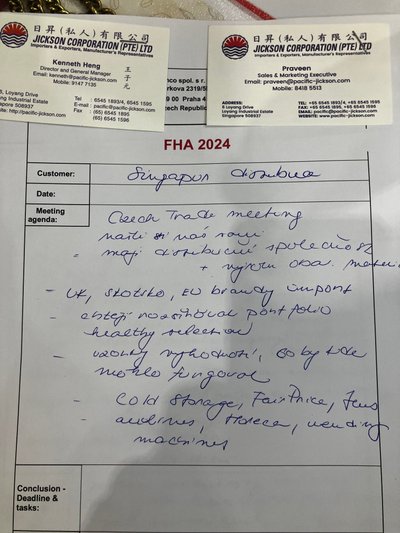 日昇(私人)有限公司
JICKSON CORPORATION (PTE) LTD
Importers & Exporters, Manufacturer's Representatives
Kenneth Heng
Director and General Manager
Email: kenneth@pacific-jickson.com
Mobile: 9147 7135
王子元
Loyang Drive
Loyang Industrial Estate
Singapore 508937
http://pacific-jickson.com
Tel : 6545 1893/4, 6545 1595
E-mail : pacific@pacific-jickson.com
Fax : (65) 6545 1895
(65) 6545 1596
日昇(私人)有限公司
JICKSON CORPORATION (PTE) LTD
Importers & Exporters, Manufacturer's Representatives
Praveen
Sales & Marketing Executive
Email: praveen@pacific-jickson.com
Mobile: 8418 5513
ADDRESS:
6 Loyang Drive
Loyang Industrial Estate
Singapore 508937
TEL: +65 6545 1893/4, +65 6545 1595
FAX: +65 6545 1895, +65 6545 1596
EMAIL: pacific@pacific-jickson.com
WEBSITE: www.pacific-jickson.com
nco spol. s r.
rkova 2319/5
00 Praha 4
ech Republic
FHA 2024
Customer:
Singapur distribuce
Date:
Meeting agenda:
Czech Trade meeting
našli si nás sami
- mají distribuční společnost
+ vyrobu oba.
- UK, Skotsko, EU brandy import
- chtějí rozšiřovat portfolio
healthy selection
- vzorky vyhodnotí, co by tade
mohlo fungovat
- Cold Storage, FairPrice,
- airlines, Horeca, vending
machines
Conclusion -
Deadline &
tasks: